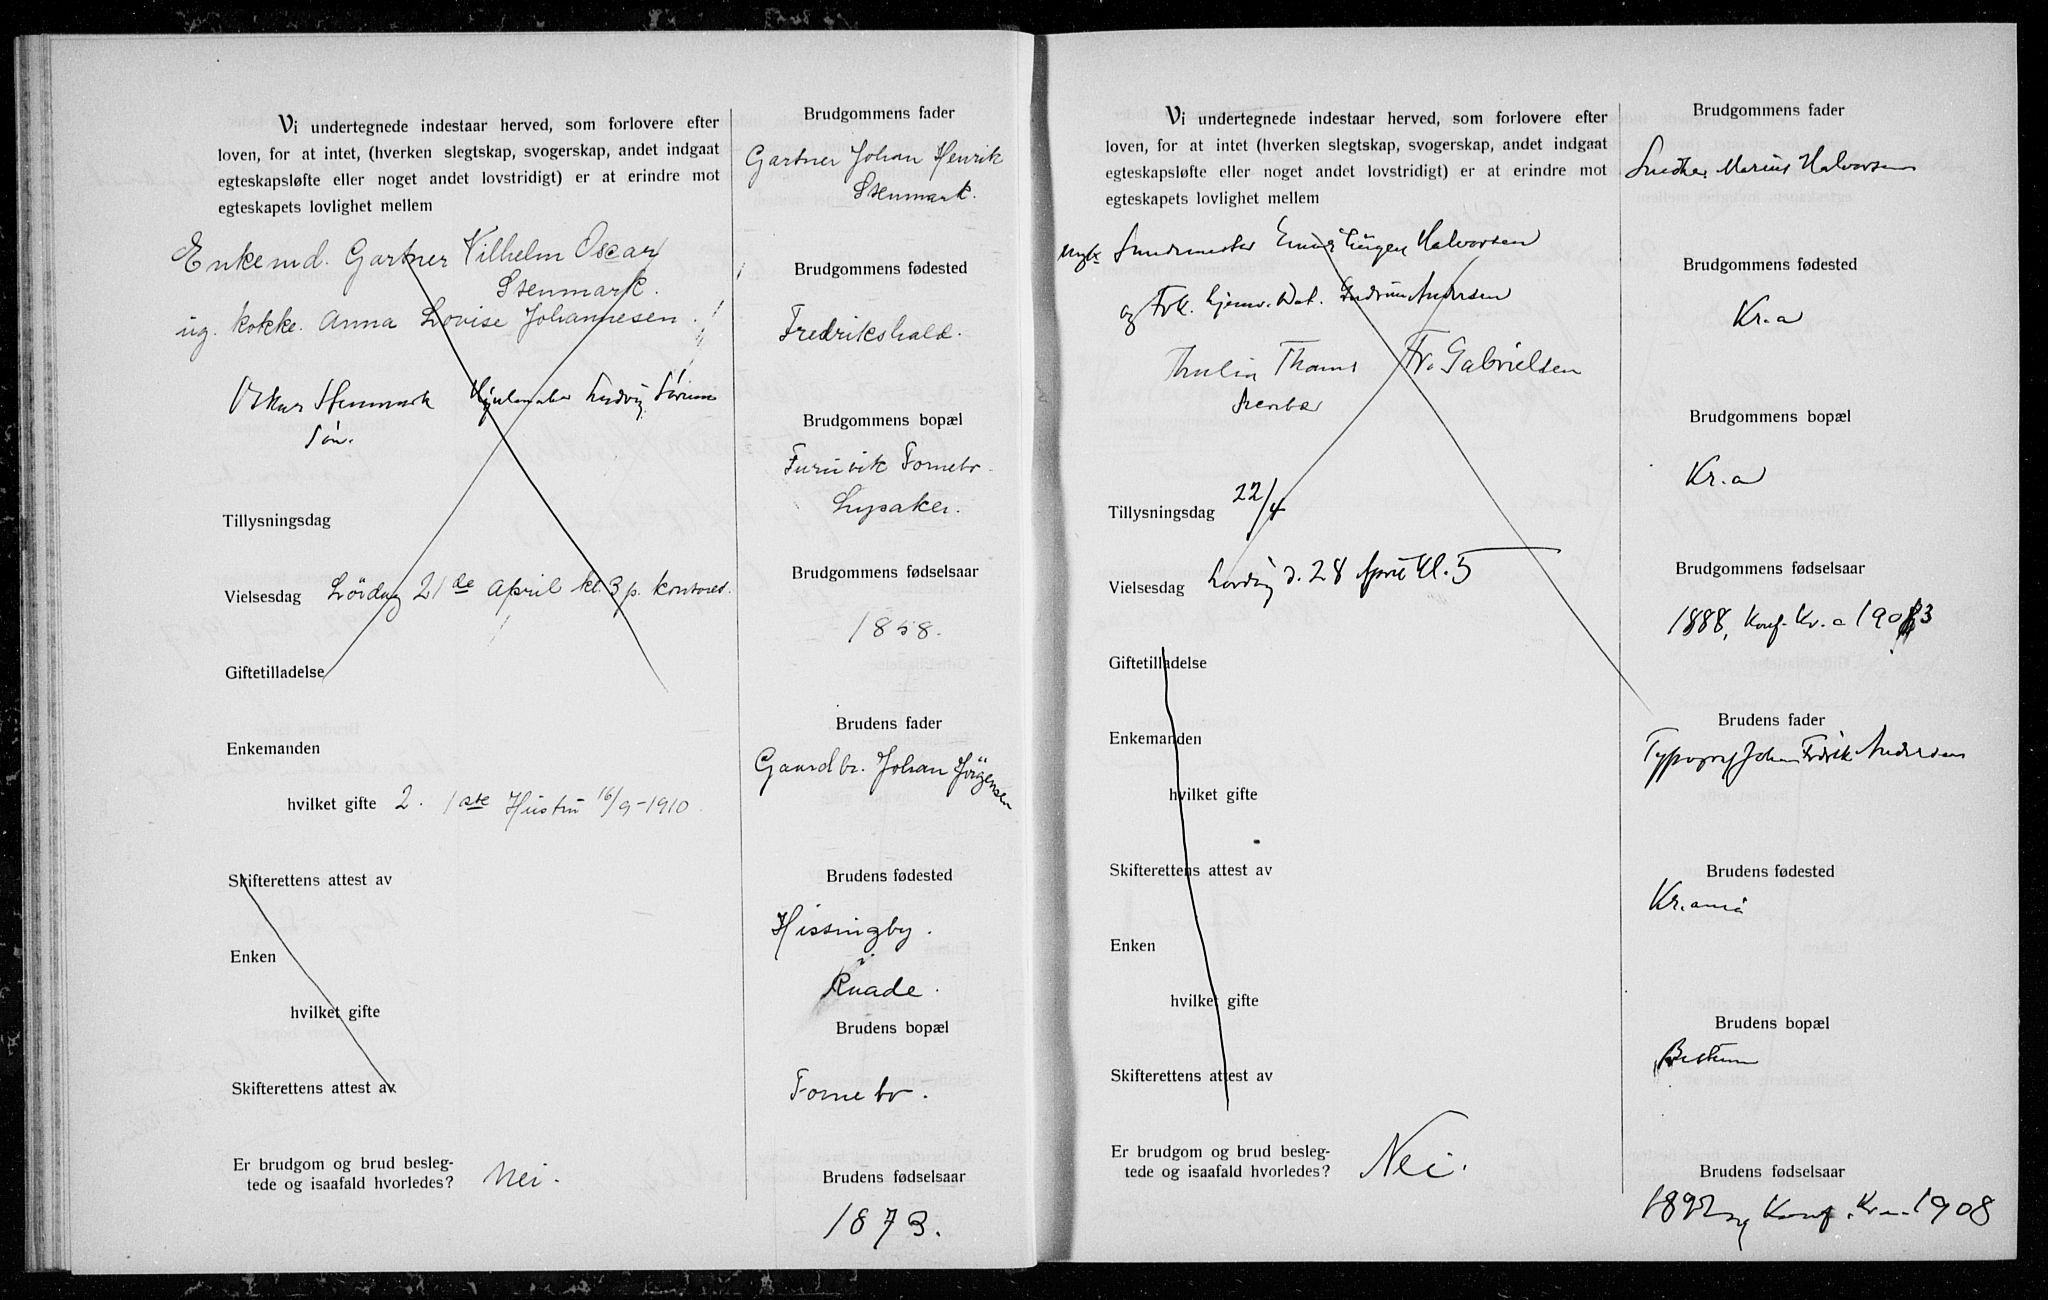 Vi undertegnede indestaar herved, som forlovere efter
loven, for at intet, (hverken slegtskap, svogerskap, andet indgaat
egteskapsløfte eller noget andet lovstridigt) er at erindre mot
egteskapets lovlighet mellem
Enkemd. Gartner Vilhelm Oscar
Stenmark.
ug. kokke. Anna Lovise Johannesen.
Oskar Stenmark Hjulmaker Ludvig Sørum
Tillysningsdag
Vielsesdag Lördag 21de april kl. 3 p. kontoret.
Giftetilladelse
Enkemanden
hvilket gifte 2. 1ste Hustru 16/9-1910
Skifterettens attest av
Enken
hvilket gifte
Skifterettens attest av
Er brudgom og brud besleg-
tede og isaafald hvorledes? Nei.
Brudgommens fader
Gartner Johan Henrik
Stenmark.
Brudgommens fødested
Fredrikshald.
Brudgommens bopæl
Furuvik Fornebo.
Lysaker.
Brudgommens fødselsaar
1858.
Brudens fader
Gaardbr. Johan Jörgensen
Brudens fødested
Hissingby.
Raade.
Brudens bopæl
Fornebo.
Brudens fødselsaar
1873.
Vi undertegnede indestaar herved, som forlovere efter
loven, for at intet (hverken slegtskap, svogerskap, andet indgaat
egteskapsløfte eller noget andet lovstridigt) er at erindre mot
egteskapets lovlighet mellem
Ungk. Smedmester Einar Jürgen Halvorsen
og Frk. hjemv. Dat. Gudrun Andersen
Thulin Thoms Fr. Gabrielsen
Tillysningsdag 22/4
Vielsesdag Lørdag d. 28 April Kl. 5
Giftetilladelse
Enkemanden
hvilket gifte
Skifterettens attest av
Enken
hvilket gifte
Skifterettens attest av
Er brudgom og brud besleg-
tede og isaafald hvorledes? Nei.
Brudgommens fader
Smed Marius Halvorsen
Brudgommens fødested
Kr.a
Brudgommens bopæl
Kr.a
Brudgommens fødselsaar
1888, Konf. Kr.a 1903
Brudens fader
Typograf Johan Fredrik Andersen
Brudens fødested
Kr.ania
Brudens bopæl
Bestum
Brudens fødselsaar
1892 og Konf. Kr.a. 1908